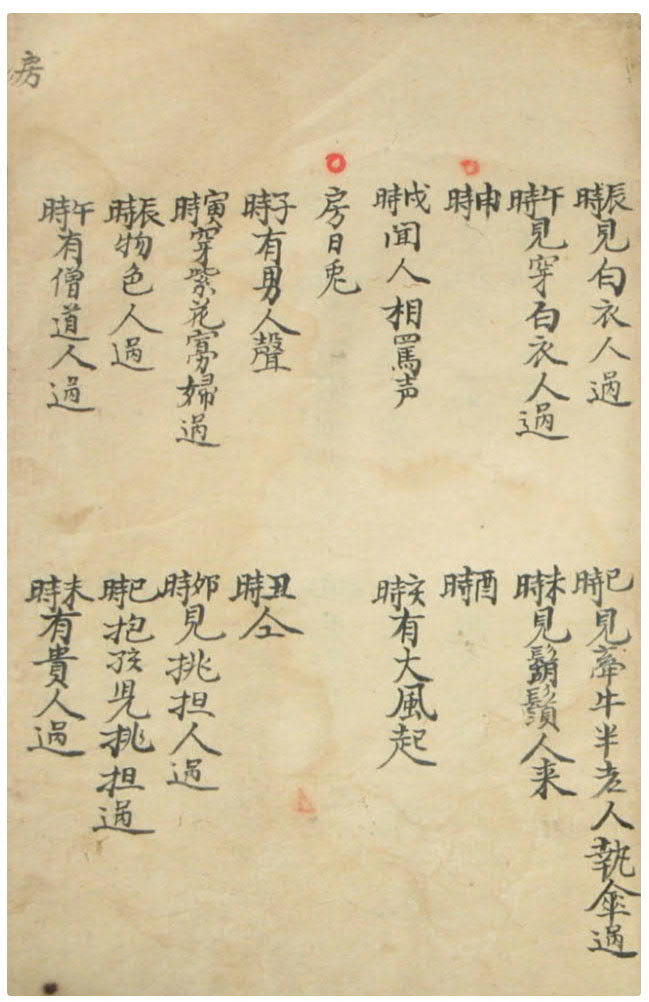 辰時見白衣人過
巳時見牽牛半老人執傘過
午時見穿白衣人過
未時見鬍鬚人来
申時
酉時
戌時聞人相罵声
亥時有大風起
房日兎
子時有男人聲
丑時仝
寅時穿紫花寡婦過
卯時見挑担人過
辰時物色人過
巳時抱孩児挑担過
午時有僧道人過
未時有貴人過
房